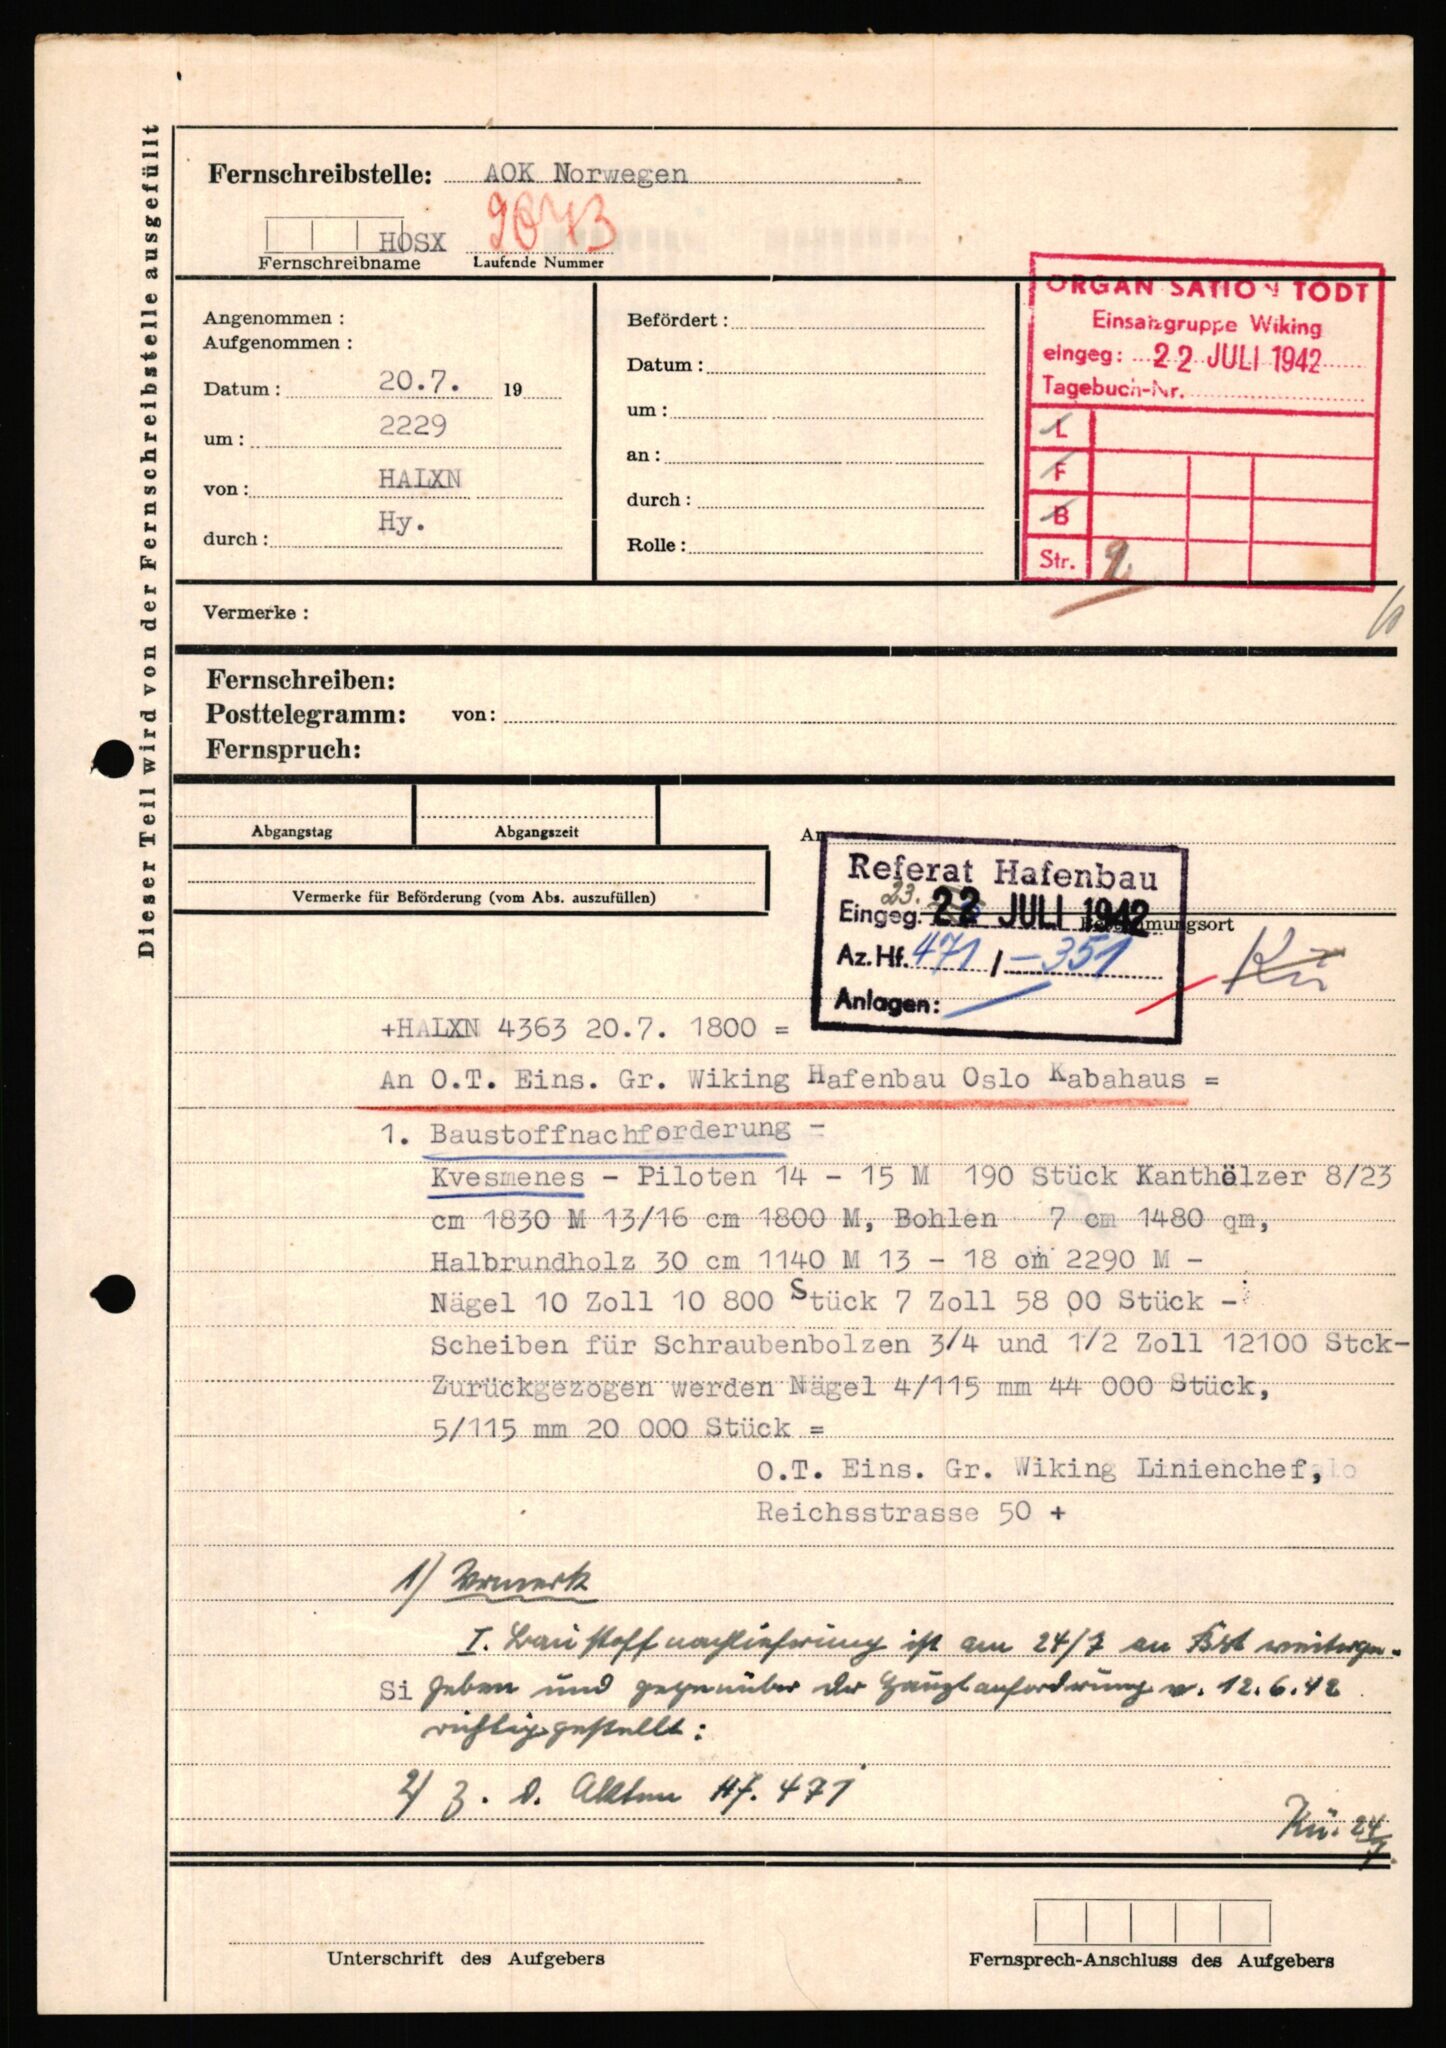 Dieser Teil wird von der Fernschreibstelle ausgefüllt
Fernschreibstelle: AOK Norwegen
HOSX 9873
Fernschreibname Laufende Nummer
ORGANISATION TODT
Einsatzgruppe Wiking
eingeg: 22 JULI 1942
Tagebuch-Nr.
L
F
B
Str. 2
Angenommen :
Aufgenommen :
Datum : 20.7. 19
um : 2229
von : HALXN
durch : Hy.
Befördert :
Datum :
um :
an :
durch :
Rolle :
Vermerke :
Fernschreiben:
Posttelegramm: von:
Fernspruch:
Abgangstag Abgangszeit An
Vermerke für Beförderung (vom Abs. auszufüllen)
Referat Hafenbau
23.
Eingeg. 22 JULI 1942
Bestimmungsort
Az. Hf. 471 / - 351
Anlagen:
Kü
+HALXN 4363 20.7. 1800 =
An O.T. Eins. Gr. Wiking Hafenbau Oslo Kabahaus =
1. Baustoffnachforderung -
Kvesmenes - Piloten 14 - 15 M 190 Stück Kanthölzer 8/23
cm 1830 M 13/16 cm 1800 M, Bohlen 7 cm 1480 qm,
Halbrundholz 30 cm 1140 M 13 - 18 cm 2290 M -
Nägel 10 Zoll 10 800 Stück 7 Zoll 58 00 Stück -
Scheiben für Schraubenbolzen 3/4 und 1/2 Zoll 12100 Stck-
Zurückgezogen werden Nägel 4/115 mm 44 000 Stück,
5/115 mm 20 000 Stück =
O.T. Eins. Gr. Wiking Linienchef,
Reichsstrasse 50 +
1) Vermerk
I. Baustoffnachlieferung ist am 24/7 an Bst weiterge-
Si geben und gegenüber der Hauptanforderung v. 12.6.42
richtiggestellt:
2) z. d. Akten Hf. 471
Kü. 24/7.
Unterschrift des Aufgebers
Fernsprech-Anschluss des Aufgebers